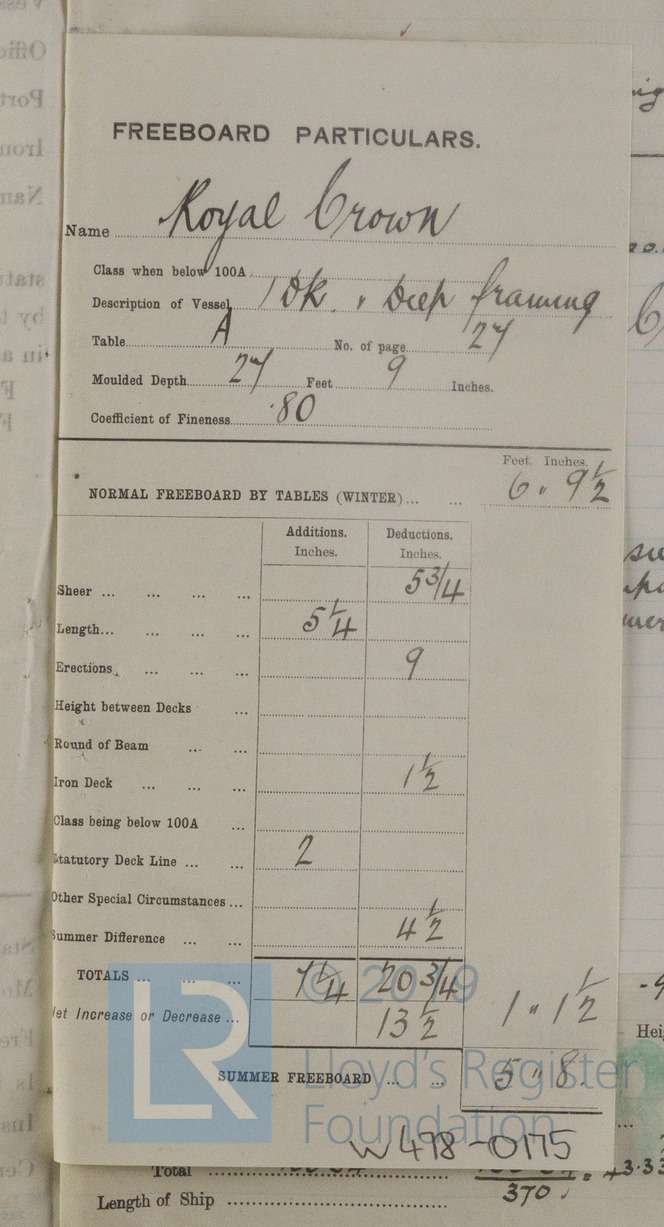 FREEBOARD PARTICULARS.
Name Royal Crown
Class when below 100A
Description of Vessel 1 Dk. " Deep framing
Table A No. of page 27
Moulded Depth 27 Feet 9 Inches.
Coefficient of Fineness .80
Feet. Inches.
NORMAL FREEBOARD BY TABLES (WINTER)... ... 6 " 9 1/2
Additions. Deductions.
Inches. Inches.
Sheer ... ... ... ... 5 3/4
Length... ... ... ... 5 1/4
Erections. ... ... ... 9
Height between Decks ...
Round of Beam ... ...
Iron Deck ... ... ... 1 1/2
Class being below 100A ...
Statutory Deck Line ... ... 2
Other Special Circumstances ...
Summer Difference ... ... 4 1/2
TOTALS ... ... ... 7 1/4 20 3/4
Net Increase or Decrease ... 13 1/2 1 " 1 1/2
SUMMER FREEBOARD ... ... 5 " 8.
© 2019
LR
Lloyd's Register
Foundation
W478-0175
Total
Length of Ship 370